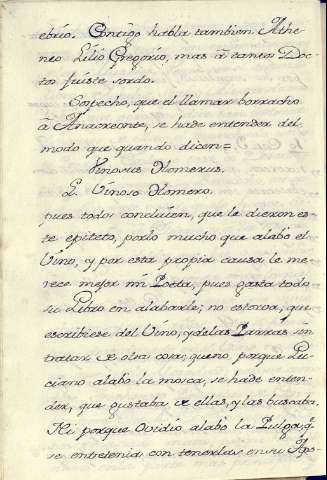 ebrio. Contigo habla tambien Athe
neo Lilio Gregorio, mas â tantos Doc
tos fuiste sordo.
Sospecho, que el llamar borracho
â Anacreonte, se hade entender del
modo que quando dicen=
Vinosus Homerus.
El Vinoso Homero.
pues todos concluien, que le dieron es
te epiteto, porlo mucho que alabó el
Vino, y por esta propia causa le me
rece mejor mi Poeta, pues gasta todo
su Libro en alabarle; no estorva, que
escribiese del Vino, y delas Parras sin
tratar de otra cosa, queno porque Lu
ciano alabó la mosca, se hade enten
der, que gustaba de ellas, y las buscaba.
Ni porque Ovidio alabó la Pulga, q.
se entretenia con tenerlas en su Apo